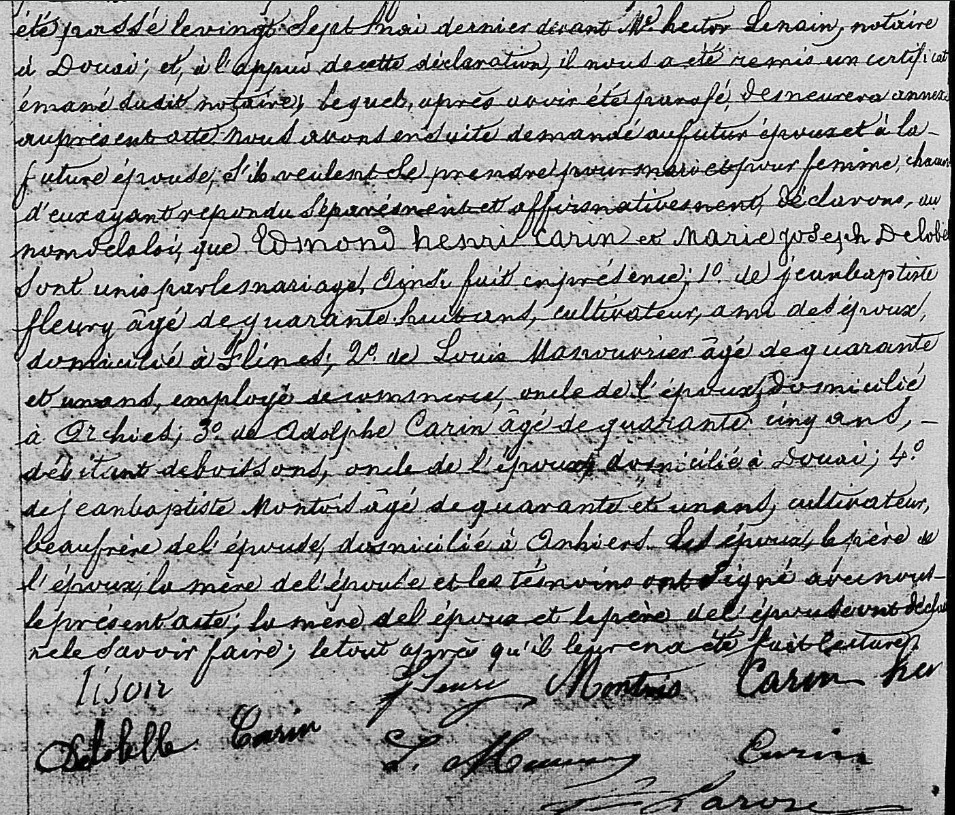 été passé le vingt Sept Mai dernier devant Me hector Lenain, notaire
à Douai; et, à l'appui de cette déclaration, il nous a été remis un certificat
émané dudit notaire, lequel, après avoir été parafé, demeurera annexé
au présent acte Nous avons ensuite demandé au futur époux et à la
future épouse, s'ils veulent se prendre pour mari et pour femme, chacun
d'eux ayant répondu Séparément et affirmativement, déclarons, au
nom de la loi, que Edmond henri Carin et Marie Joseph Delobel
Sont unis par le mariage, Ainsi fait en présence; 1o. de jean baptiste
fleury âgé de quarante huit ans, cultivateur, ami des époux,
domicilié à Flines; 2o. de Louis Manouvrier âgé de quarante
et un ans, employé de commerce, oncle de l'époux, domicilié
à Orchies; 3o. de Adolphe Carin âgé de quarante cinq ans, -
débitant de boissons, oncle de l'époux, domicilié à Douai; 4o
de jean baptiste Montois âgé de quarante et un ans, cultivateur,
beaufrère de l'épouse, domicilié à Anhiers. Les époux, le père de
l'époux, la mère de l'épouse et les témoins ont Signé avec nous
le présent acte, la mère de l'époux et le père de l'épouse ont déclaré
ne le Savoir faire; le tout après qu'il leur en a été fait lecture.
fleury Montois Carin
Delobelle Carin L. Carin